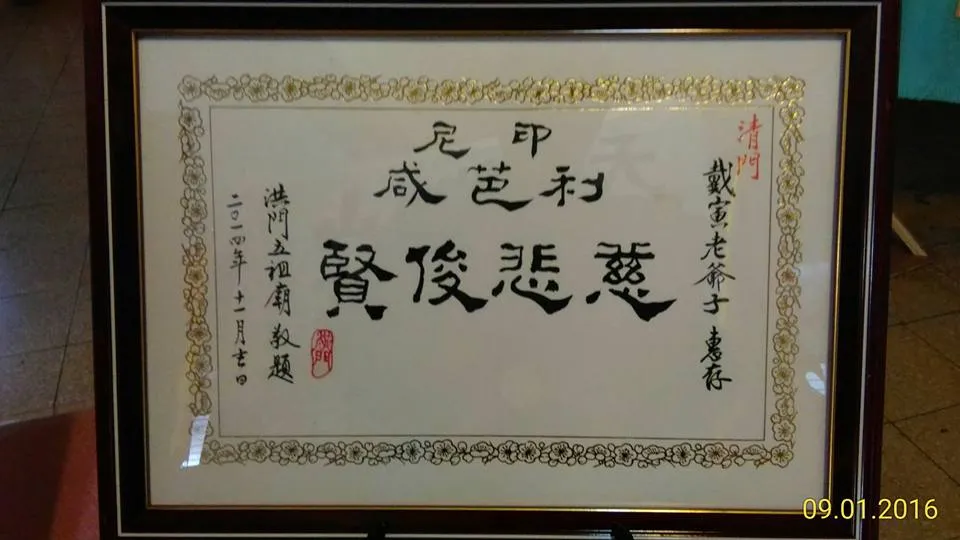 清門
戴寅老爺子 惠存
印尼
利芭咸
慈悲俊賢
洪門五祖廟 敬題
二〇一四年 十一月吉日
09.01.2016